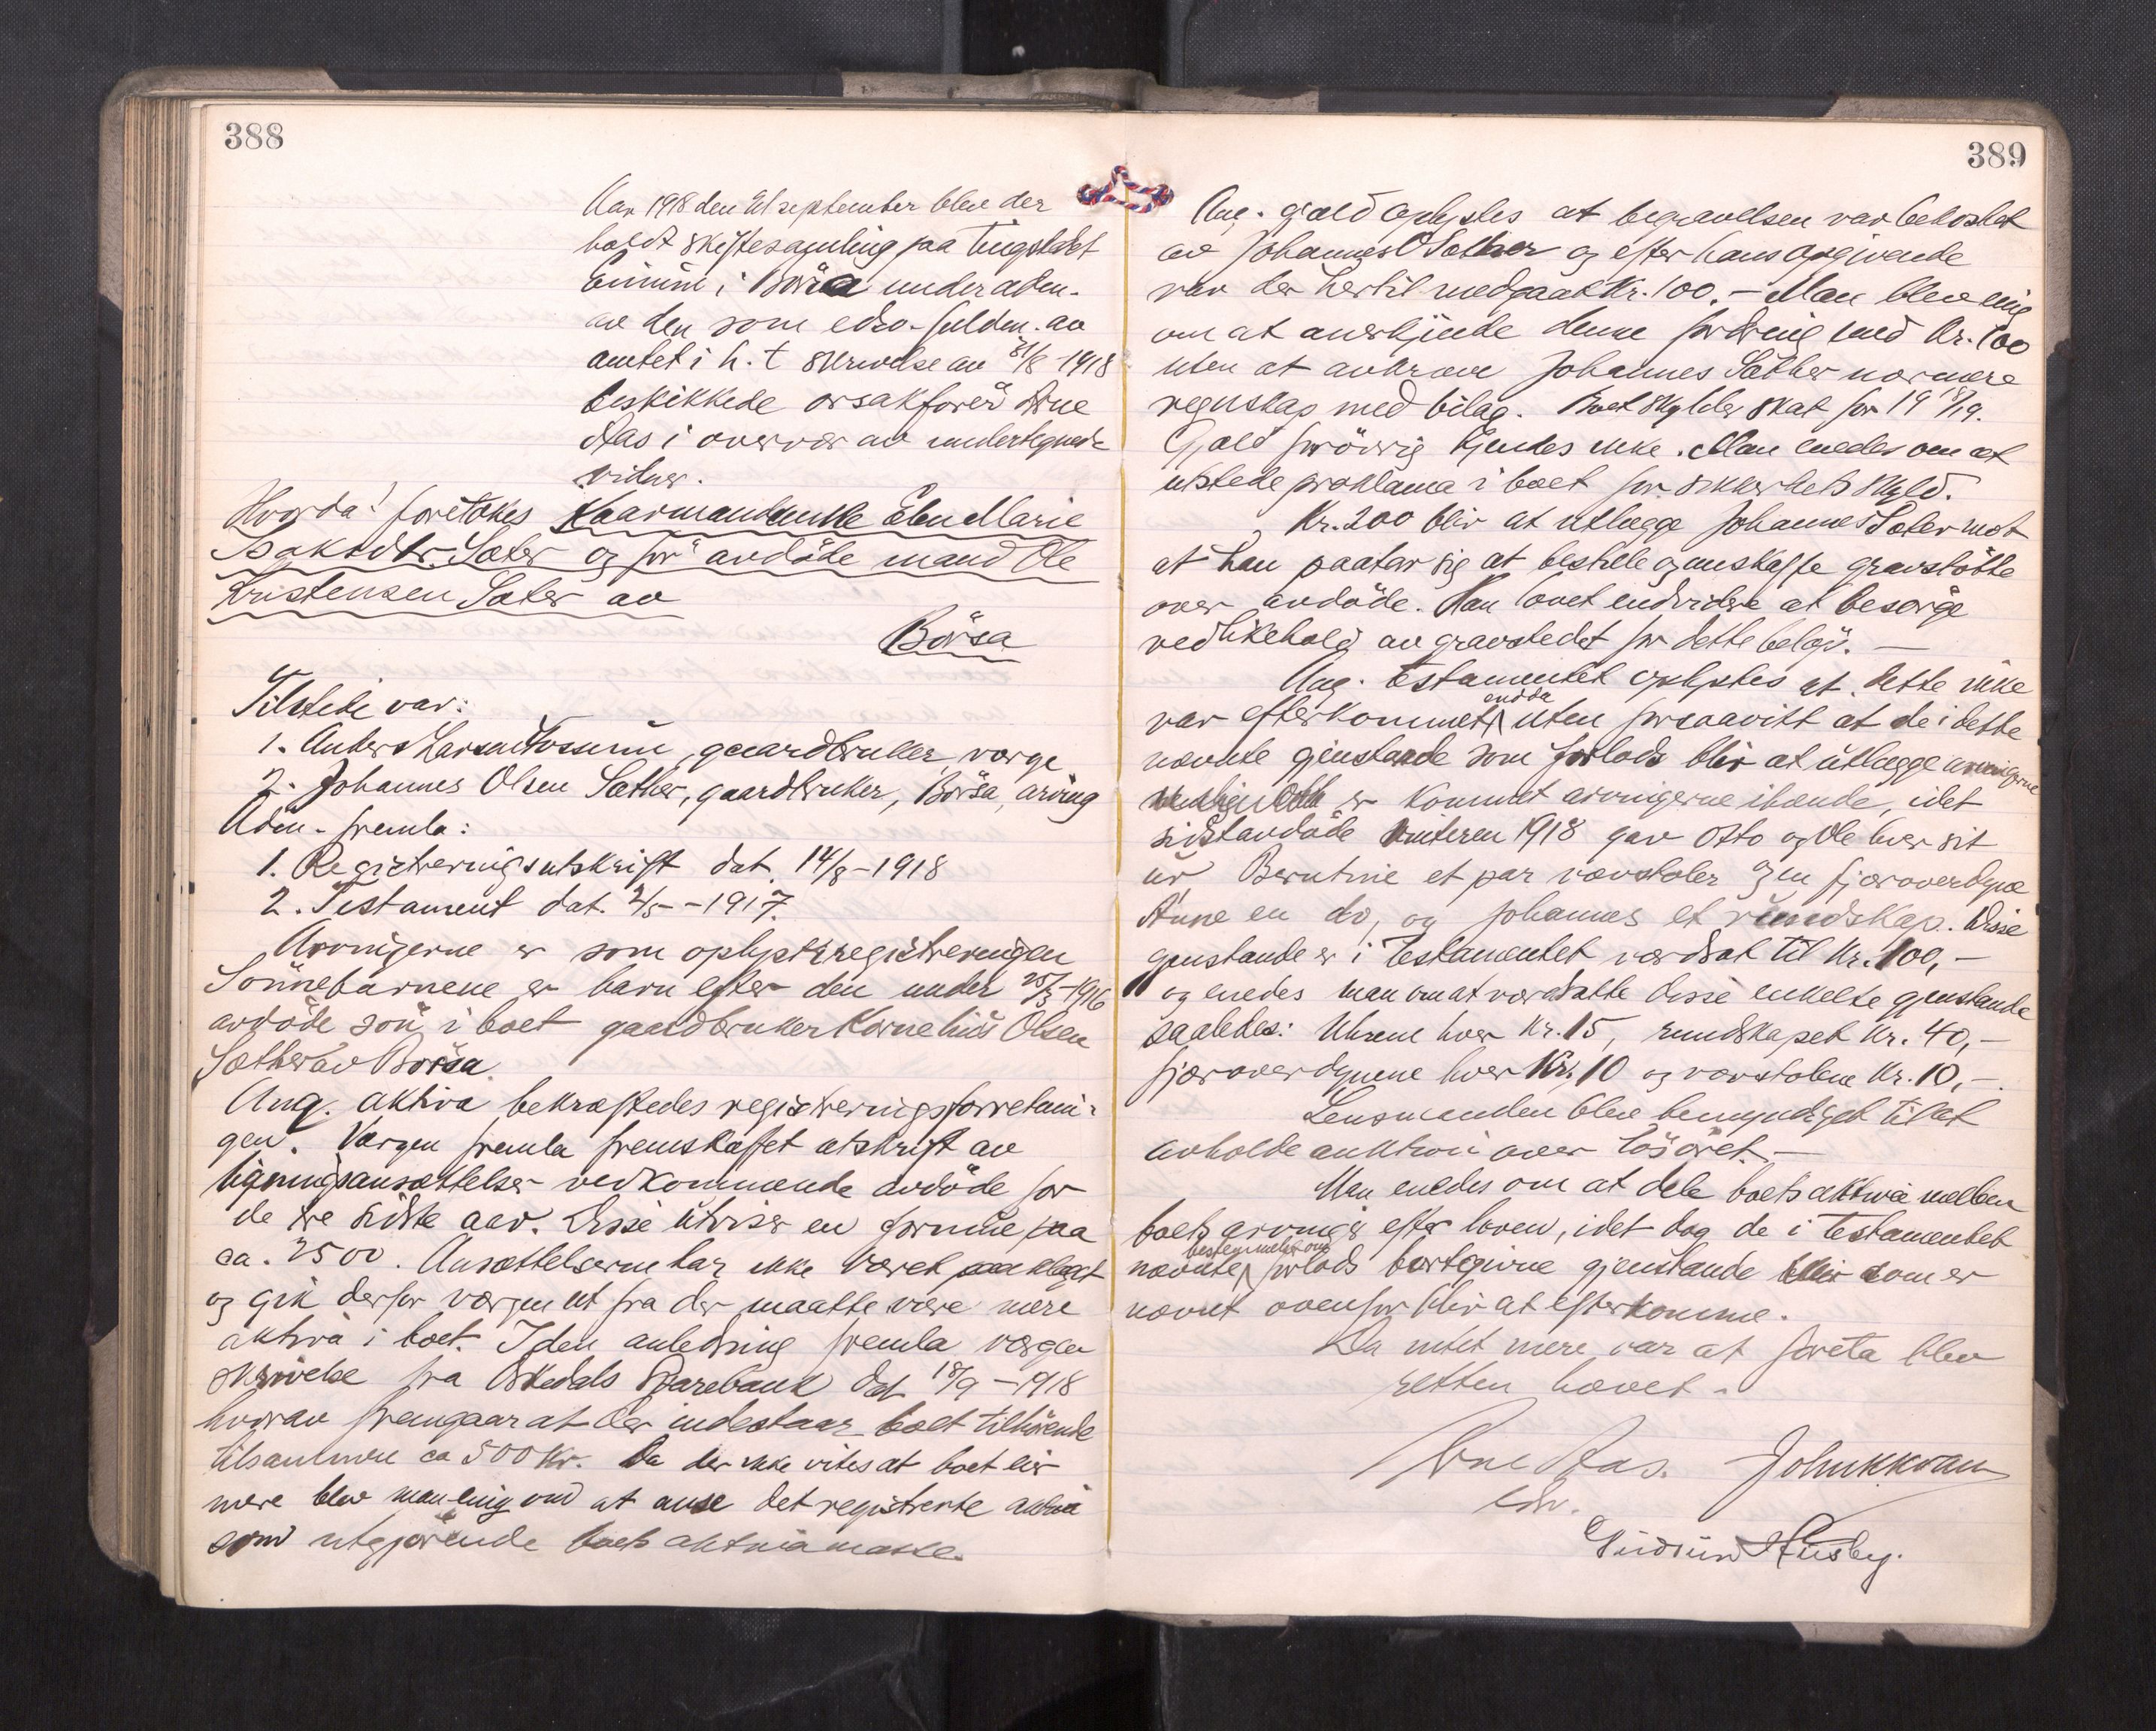 388
Aar 1918 den 21 september blev der
holdt skiftesamling paa tingstedet
Einum i Börsa under adm.
av den som edsv. fuldm. av
amtet i h. t skrivelse av 31/8 - 1918
beskikkede orsakförer Arne
Aas i overvær av undertegnede
vidner.
Hvorda! foretokes Kaarmandsenke Elen Marie
Isaksdtr. Sæter og før avdöde mand Ole
Kristensen Sæter av
Börsa
Tilstede var:
1. Anders Larsen Fossum, gaardbruker, værge
2. Johannes Olsen Sæther, gaardbruker, Börsa, arving
Adm. fremla:
1. Registreringsutskrift dat. 14/8 - 1918
2. Testament dat. 2/5 - 1917.
Arvingerne er som oplyst registreringen
Sönnebarnene er barn efter den under 25/3 - 1916
avdöde sön i boet gaardbruker Kornelius Olsen
Sæther av Börsa
Ang. aktiva bekræftedes registreringsforretnin-
gen. Værgen fremla fremskaffet utskrift av
ligningsansættelser vedkommende avdöde for
de tre sidste aar. Disse utviser en formue paa
ca. 2500. Ansættelserne har ikke været paaklaget
og gik derfor værgen ut fra der maatte være mere
aktiva i boet. I den anledning fremla værgen
skrivelse fra Børseskogn Sparebank dat 18/9 - 1918
hvorav fremgaar at der indestaar boet tilhörende
tilsammen ca 500 Kr. Da der ikke vites at boet eier
mere blev man enig om at anse det registrerte aktiva
som utgjörende boets aktivamasse.
389
Ang. gjæld oplystes at begravelsen var bekostet
av Johannes O Sæther og efter hans opgivende
var der hertil medgaat Kr. 100.- Man blev enig
om at anerkjende denne fordring med Kr. 100
uten at avkræve Johannes Sæther nærmere
regnskap med bilag. Boet skylder skat for 1918/19.
Gjæld forövrig kjendes ikke. Man enedes om at
utstede proklama i boet for sikkerhets skyld.
Kr. 200 blir at utlægge Johannes Sæter mot
at han paatar sig at bestille og anskaffe gravstötte
over avdöde. Han lovet endvidere at besörge
vedlikehold av gravstedet for dette belöp. -
Ang. testamentet oplystes at dette ikke
var efterkommet endda uten forsaavitt at de i dette
nævnte gjenstande som forlods blir at utlægge arvingerne
er kommet arvingerne ihænde, idet
sidstavdöde vinteren 1918 gav Otto og Ole hver sit
ur, Berntine et par vævstoler og en fjæroverdyne
Anne en do, og Johannes et rundskap. Disse
gjenstande er i testamentet værdsat til Kr. 100,-
og enedes man om at værdsatte disse enkelte gjenstande
saaledes: Uhrene hver Kr. 15, rundskapet Kr. 40,-
fjæroverdynene hver Kr. 10 og vævstolene Kr. 10,-.
Lensmanden blev bemyndiget til at
avholde auktion over lösöret. -
Man enedes om at dele boets aktiva mellem
boets arvinger efter loven, idet dog de i testamentet
nævnte bestemmelser om forlods bortgivne gjenstande som er
nævnt ovenfor blir at efterkomme.
Da intet mere var at foreta blev
retten hævet.
Arne Aas. John K Kvam
edsv.
Gudrun Husby.